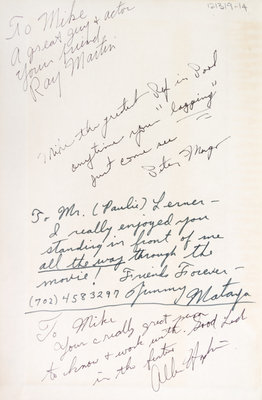 121319-14
To Mike
A great guy & actor
Yours friend
Ray Martin
Mike the greatest Pep in Pool
anytime you "lagging"
just come see
Peter
To Mr. (Paulie) Lerner-
I really enjoyed you
standing in front of me
all the way through the
movie! Friends Forever-
(702) 4583297 Mataya
To Mike
Your a really great person
to know & work with. Good Luck
in the future